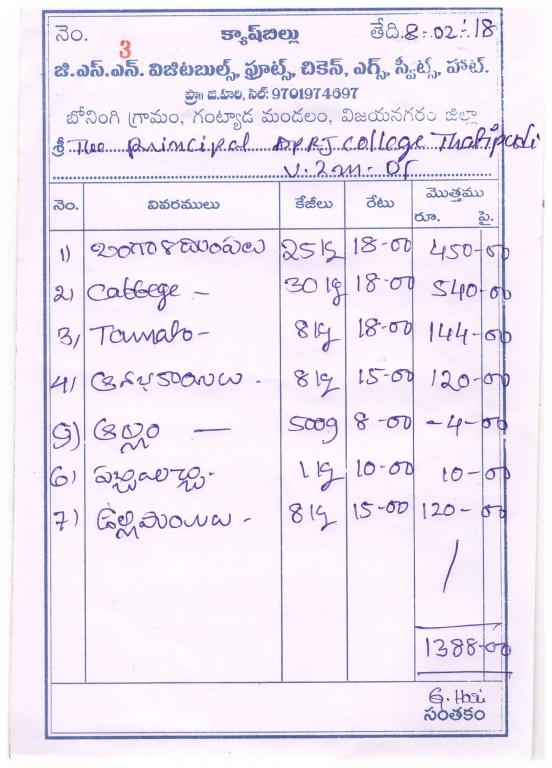 నెం. 3 క్యాష్‌బిల్లు తేది. 8-02-'18
జి.ఎస్.ఎన్. విజిటబుల్స్, ఫ్రూట్స్, చికెన్, ఎగ్స్, స్వీట్స్, హాట్.
ప్రొః జి.హరి, సెల్: 9701974697
బోనింగి గ్రామం, గంట్యాడ మండలం, విజయనగరం జిల్లా
శ్రీ The principal A.P.R.J college Thatipudi
V.Z.M. DT
నెం. వివరములు కేజీలు రేటు మొత్తము
రూ. పై.
1) బంగాళదుంపలు 25 kg 18-00 450-00
2) Cabbege - 30 kg 18-00 540-00
3) Tamato - 8 kg 18-00 144-00
4) ఆనభకాయలు - 8 kg 15-00 120-00
5) అల్లం — 500g 8-00 -4-00
6) పచ్చిమిర్చి - 1 kg 10-00 10-00
7) ఉల్లి - 8 kg 15-00 120-00
1388-00
G. Hari
సంతకం